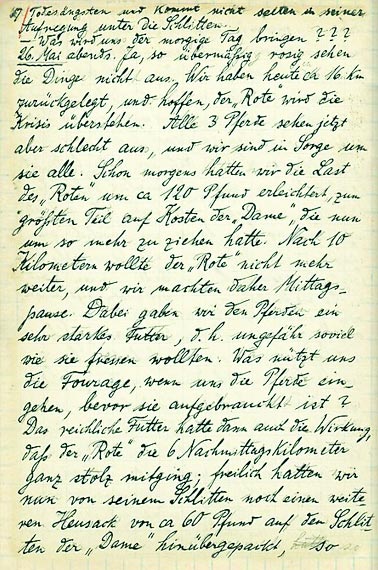 Todesängsten und kommt nicht selten in seiner
Aufregung unter die Schlitten.
Was wird uns der morgige Tag bringen ? ? ?
26. Mai abends. Ja, so übermäßig rosig sehen
die Dinge nicht aus. Wir haben heute ca 16 km
zurückgelegt, und hoffen, der „Rote" wird die
Krisis überstehen. Alle 3 Pferde sehen jetzt
aber schlecht aus, und wir sind in Sorge um
sie alle. Schon morgens hatten wir die Last
des „Roten" um ca 120 Pfund erleichtert, zum
größten Teil auf Kosten der „Dame", die nun
um so mehr zu ziehen hatte. Nach 10
Kilometern wollte der „Rote" nicht mehr
weiter, und wir machten daher Mittags-
pause. Dabei gaben wir den Pferden ein
sehr starkes Futter, d. h. ungefähr soviel
wie sie fressen wollten. Was nützt uns
die Fourage, wenn uns die Pferde ein-
gehen, bevor sie aufgebraucht ist ?
Das reichliche Futter hatte dann auch die Wirkung,
daß der „Rote" die 6 Nachmittagskilometer
ganz stolz mitging; freilich hatten wir
nun von seinem Schlitten noch einen weite-
ren Heusack von ca 60 Pfund auf den Schlit-
ten der „Dame" hinübergepackt, so